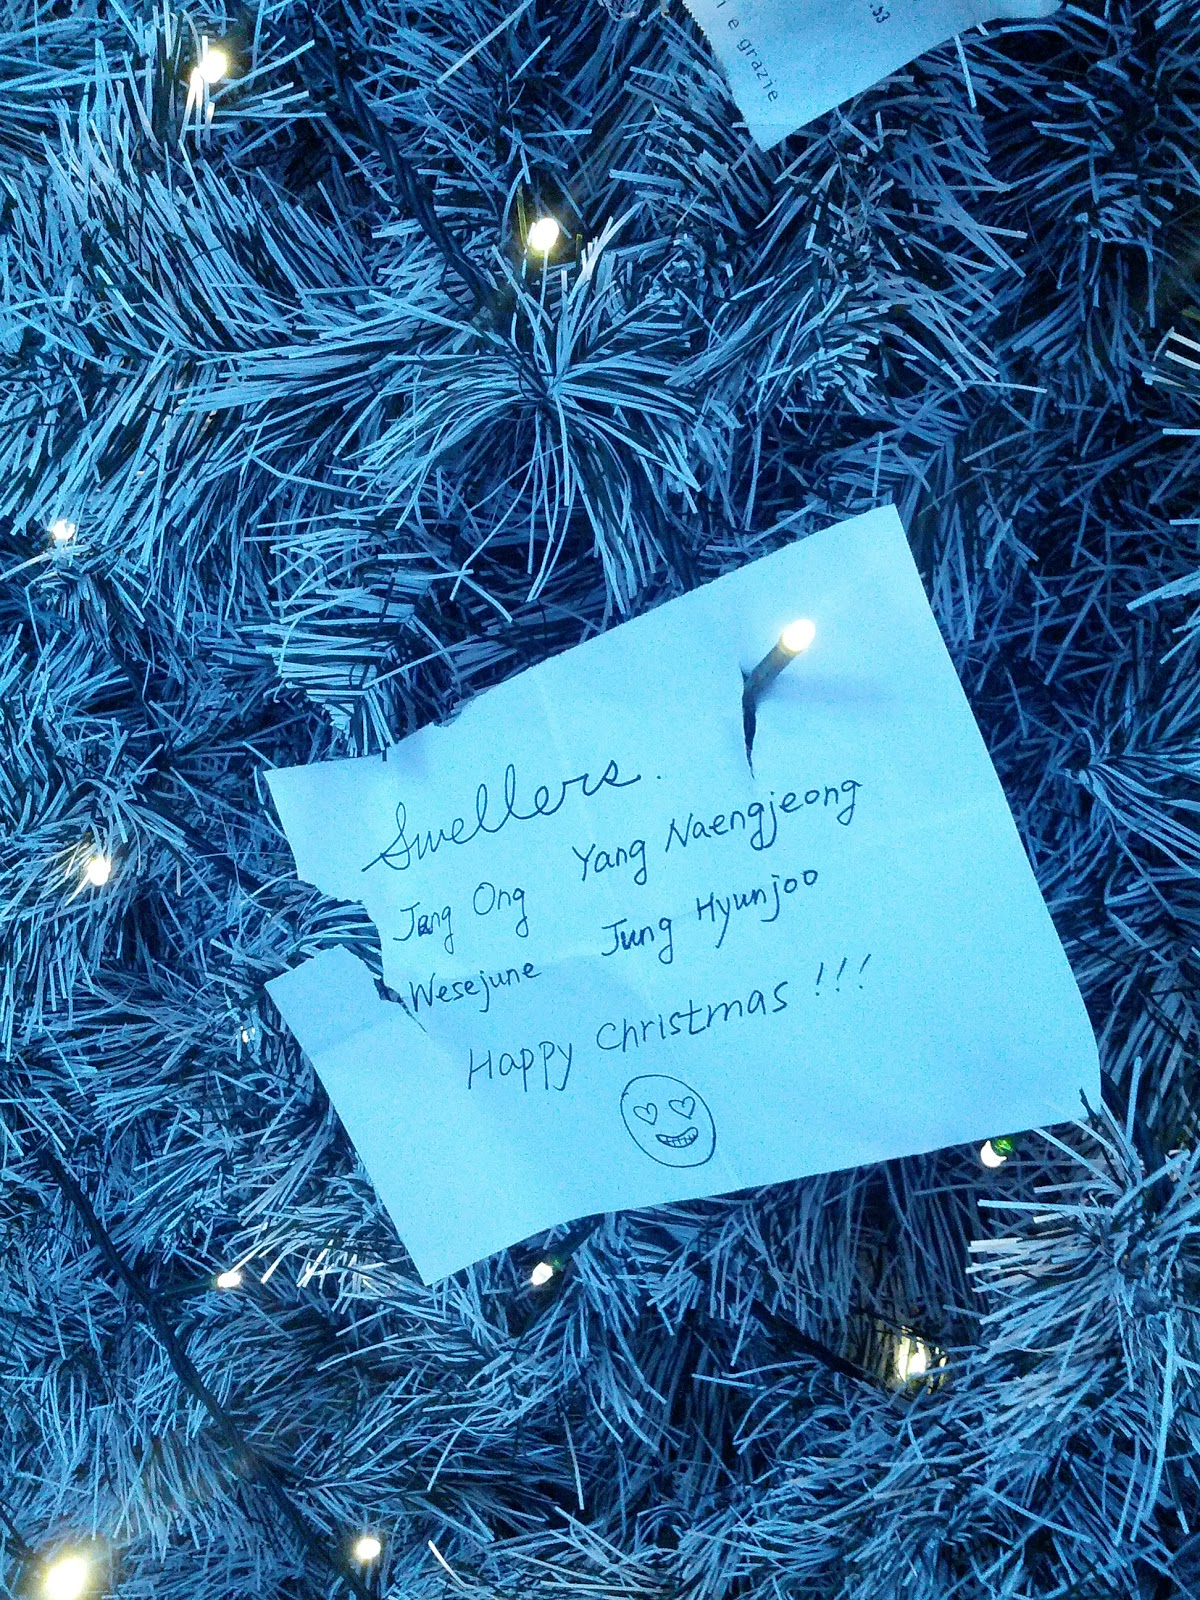 .53
i e grazie
Swellers.
Jang Ong Yang Naengjeong
Wesejune Jung Hyunjoo
Happy Christmas !!!